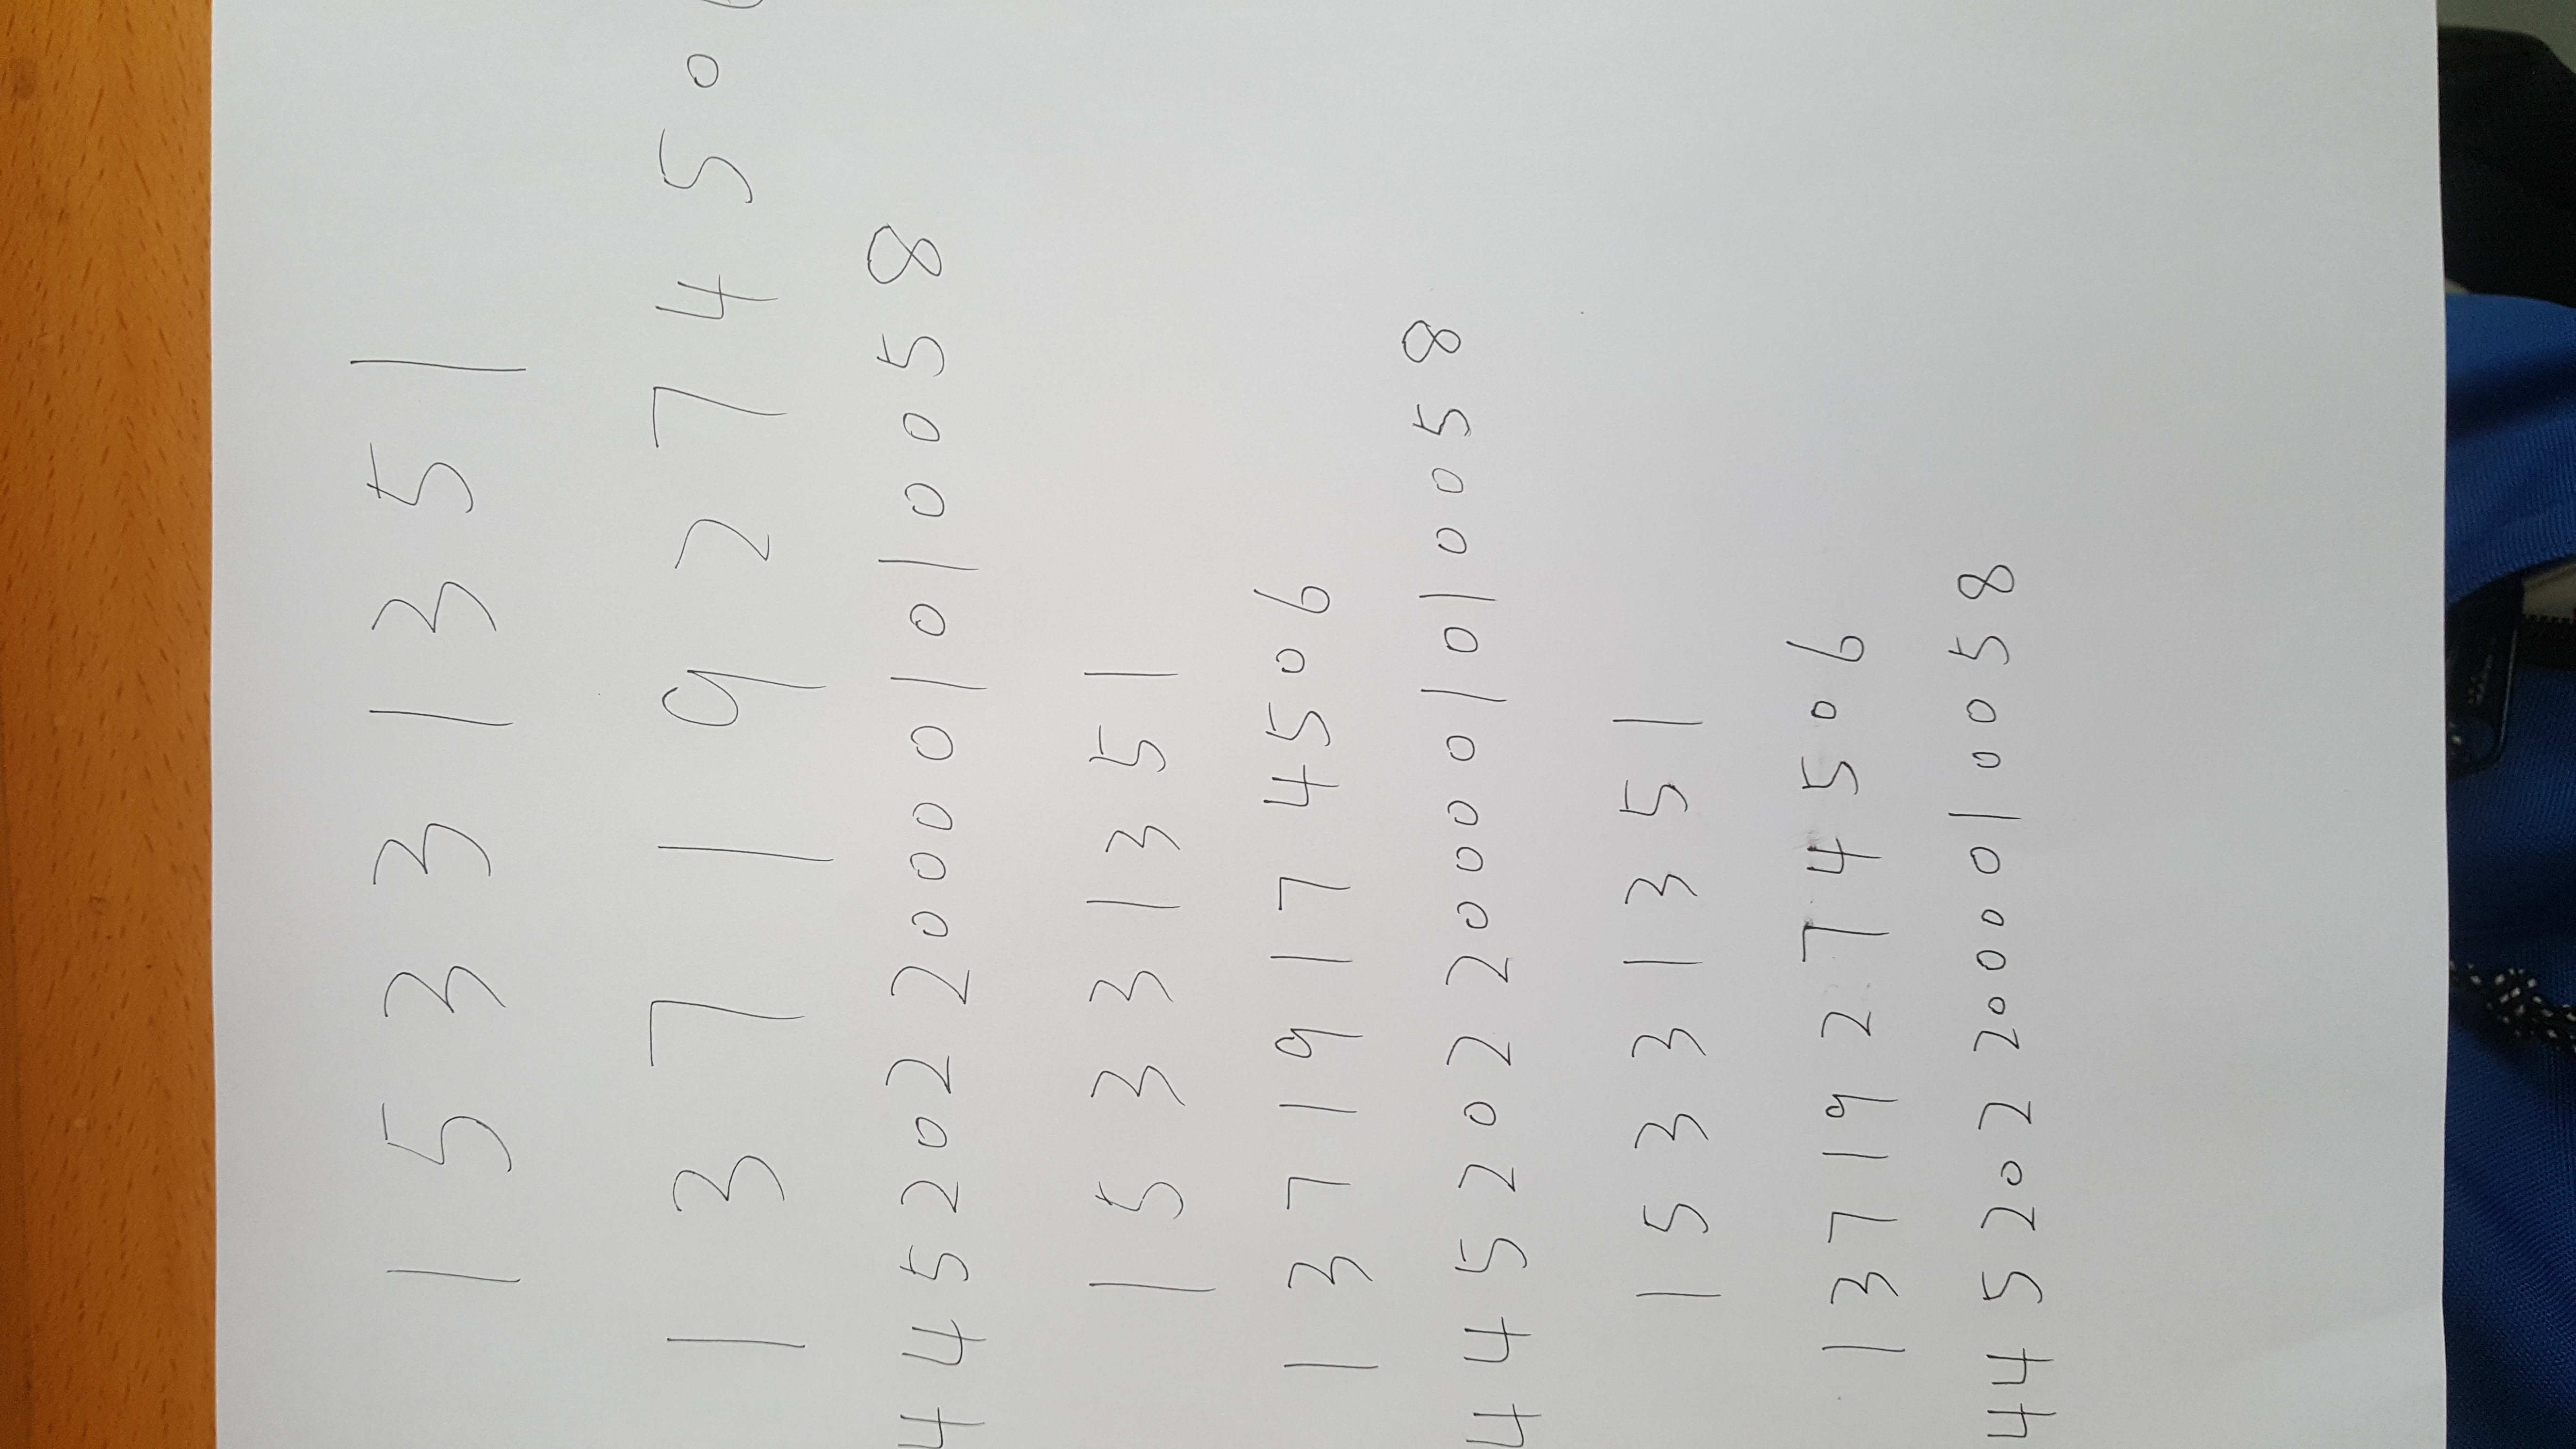 15331351
1371927450
445202200001010058
15331351
13719174506
445202200001010058
15331351
13719274506
4452022000010058